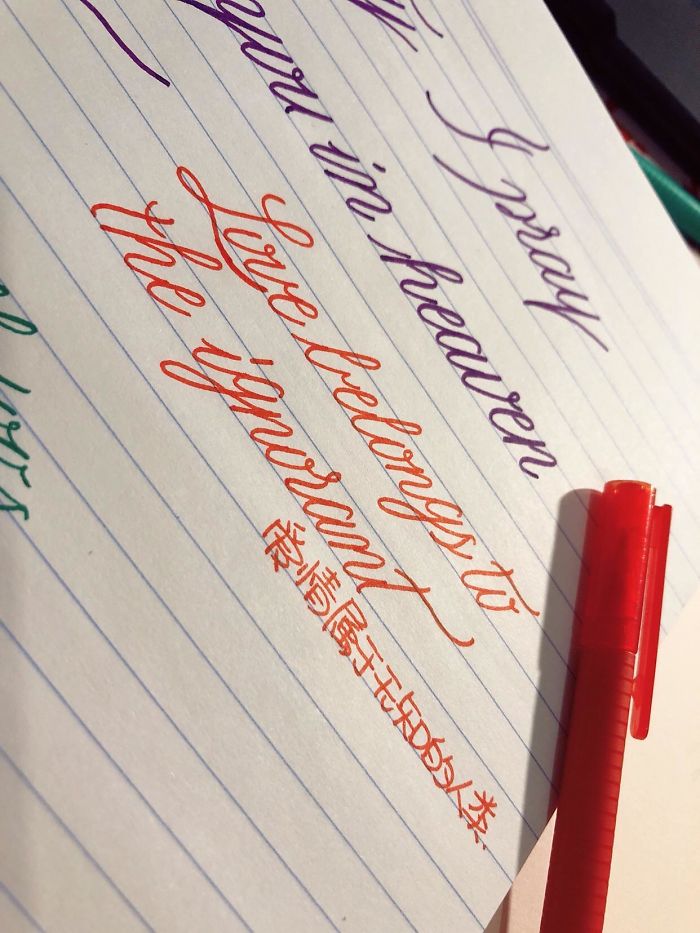 I pray
you in heaven
Love belongs to
the ignorant
爱情属于无知的人类.